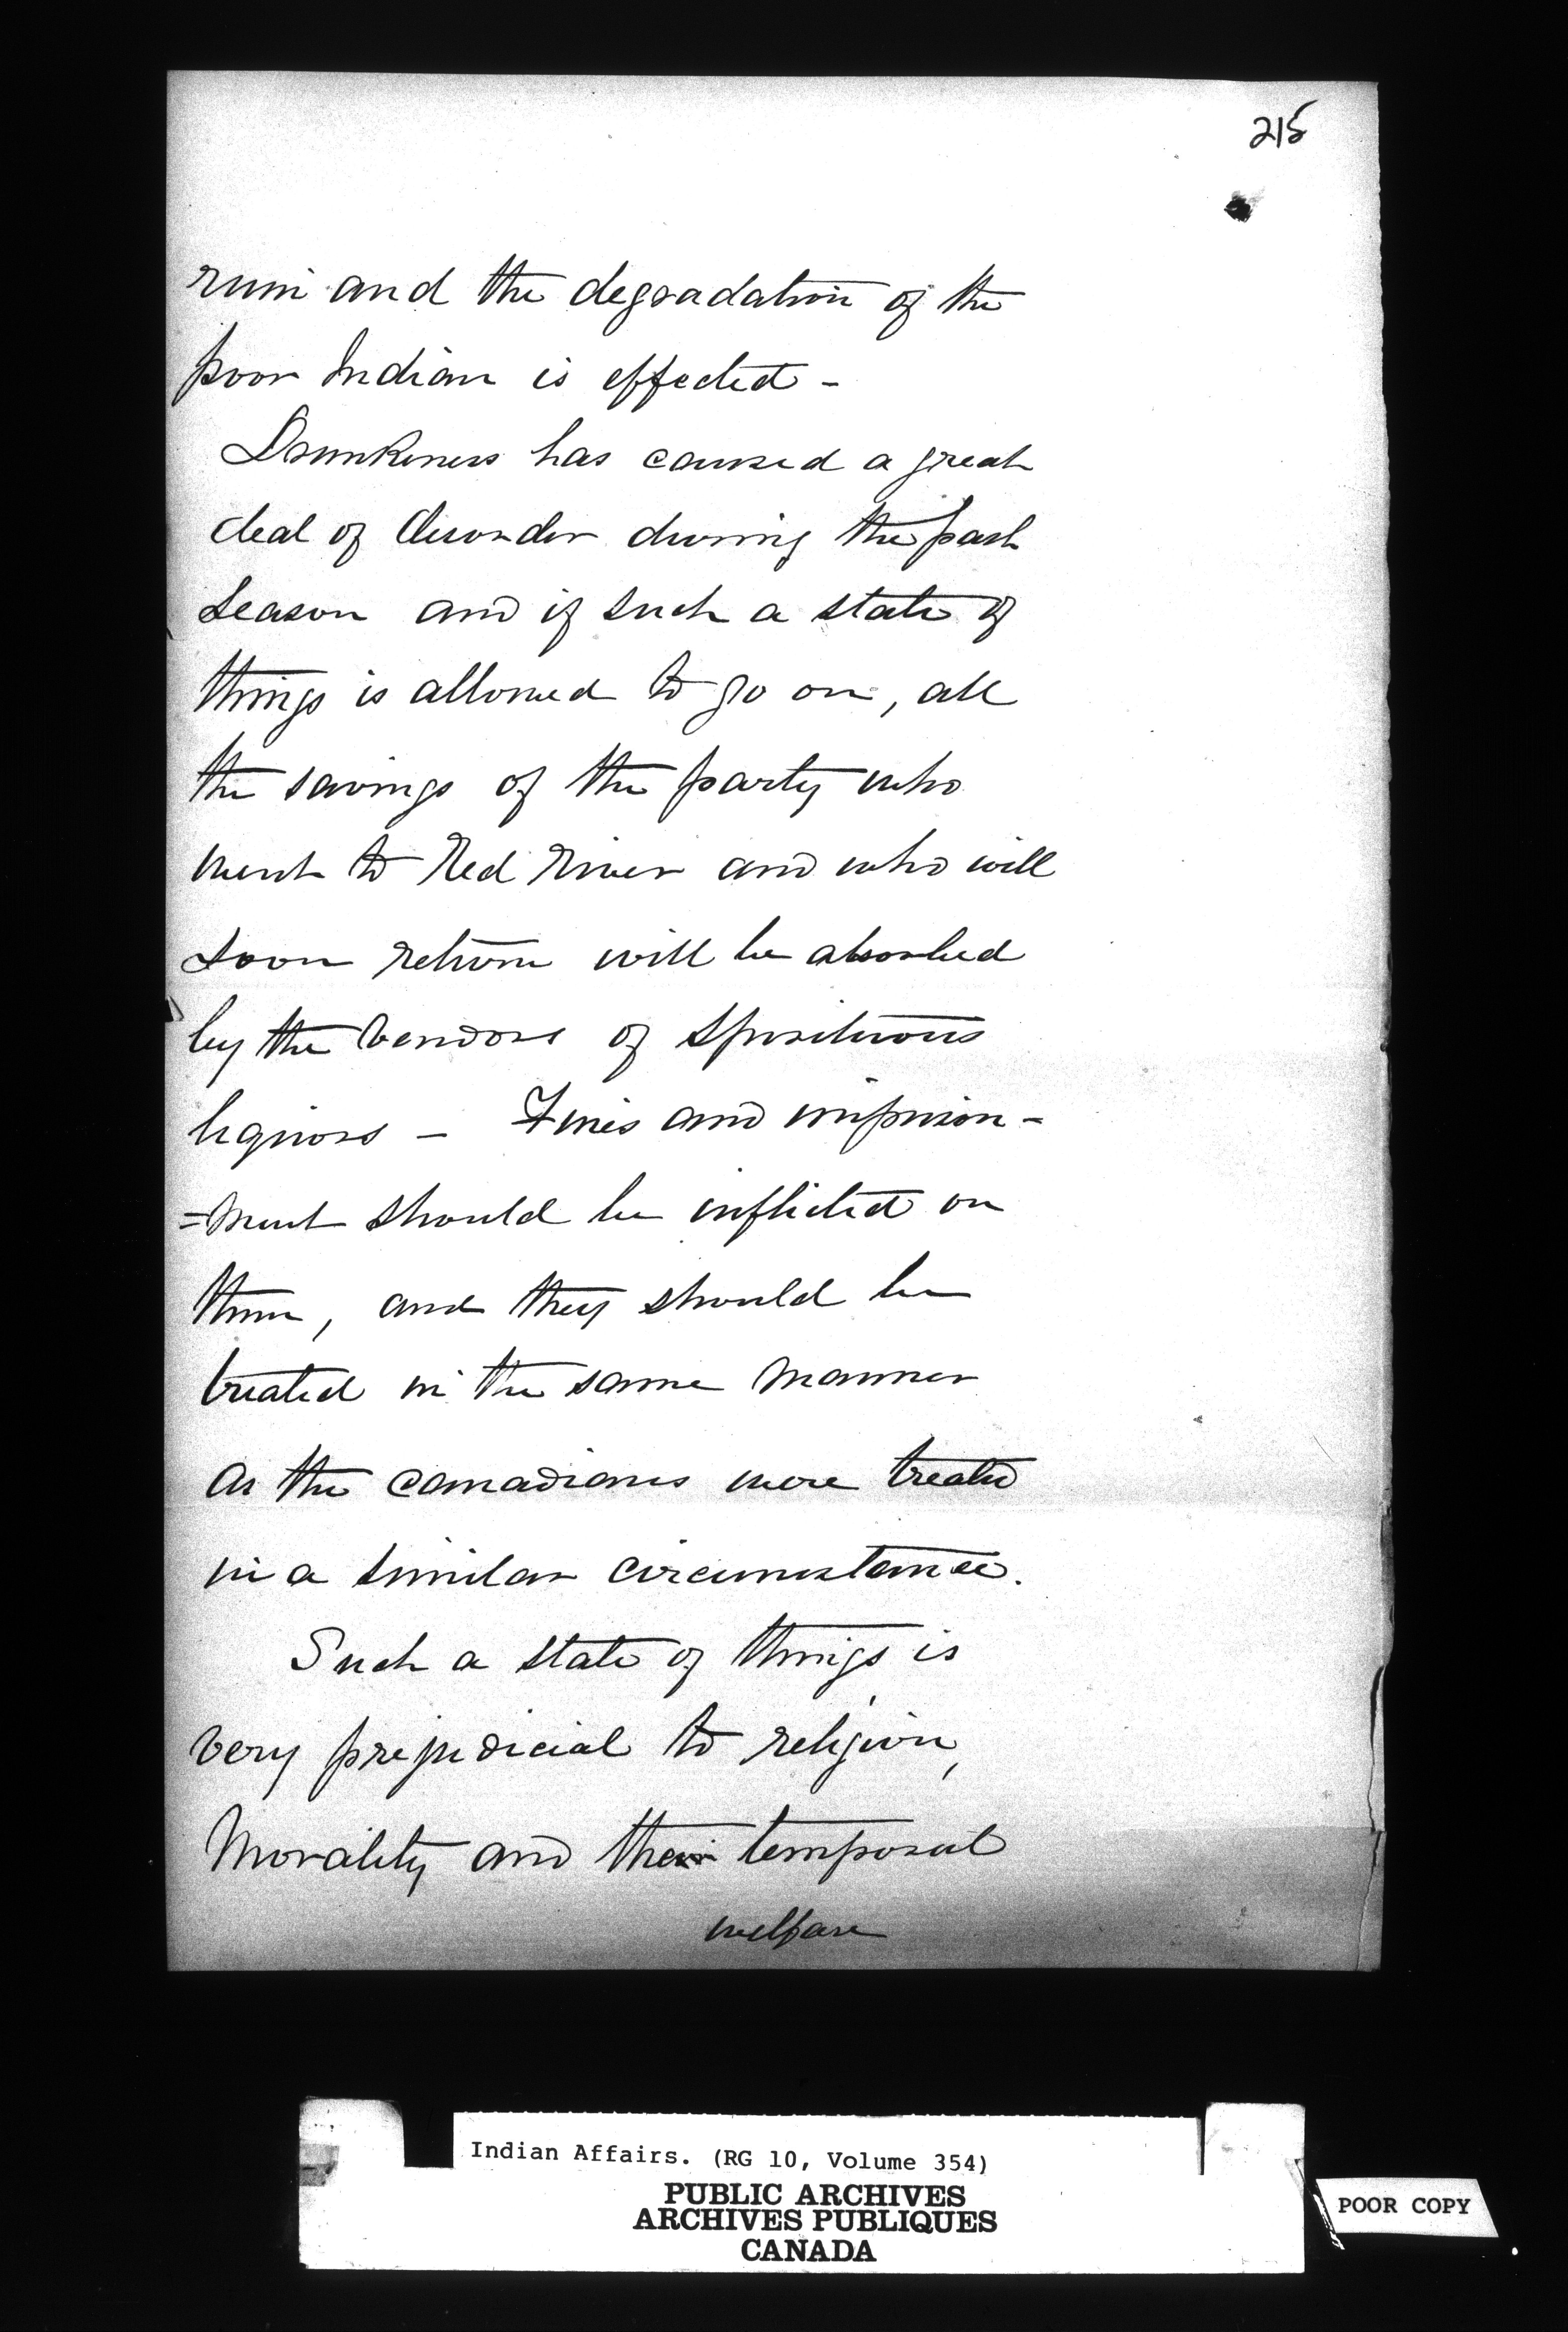 215
ruin and the degradation of the
poor Indian is effected -
Drunkeness has caused a great
deal of disorder during the past
season and if such a state of
things is allowed to go on, all
the savings of the party who
went to Red River and who will
soon return will be absorbed
by the vendors of spirituous
liquors - Fines and imprison-
=ment should be inflicted on
them, and they should be
treated in the same manner
as the canadians were treated
in a similar circumstance.
Such a state of things is
very prejudicial to religion,
Morality and their temporal
welfare
Indian Affairs. (RG 10, Volume 354)
PUBLIC ARCHIVES
ARCHIVES PUBLIQUES
CANADA
POOR COPY